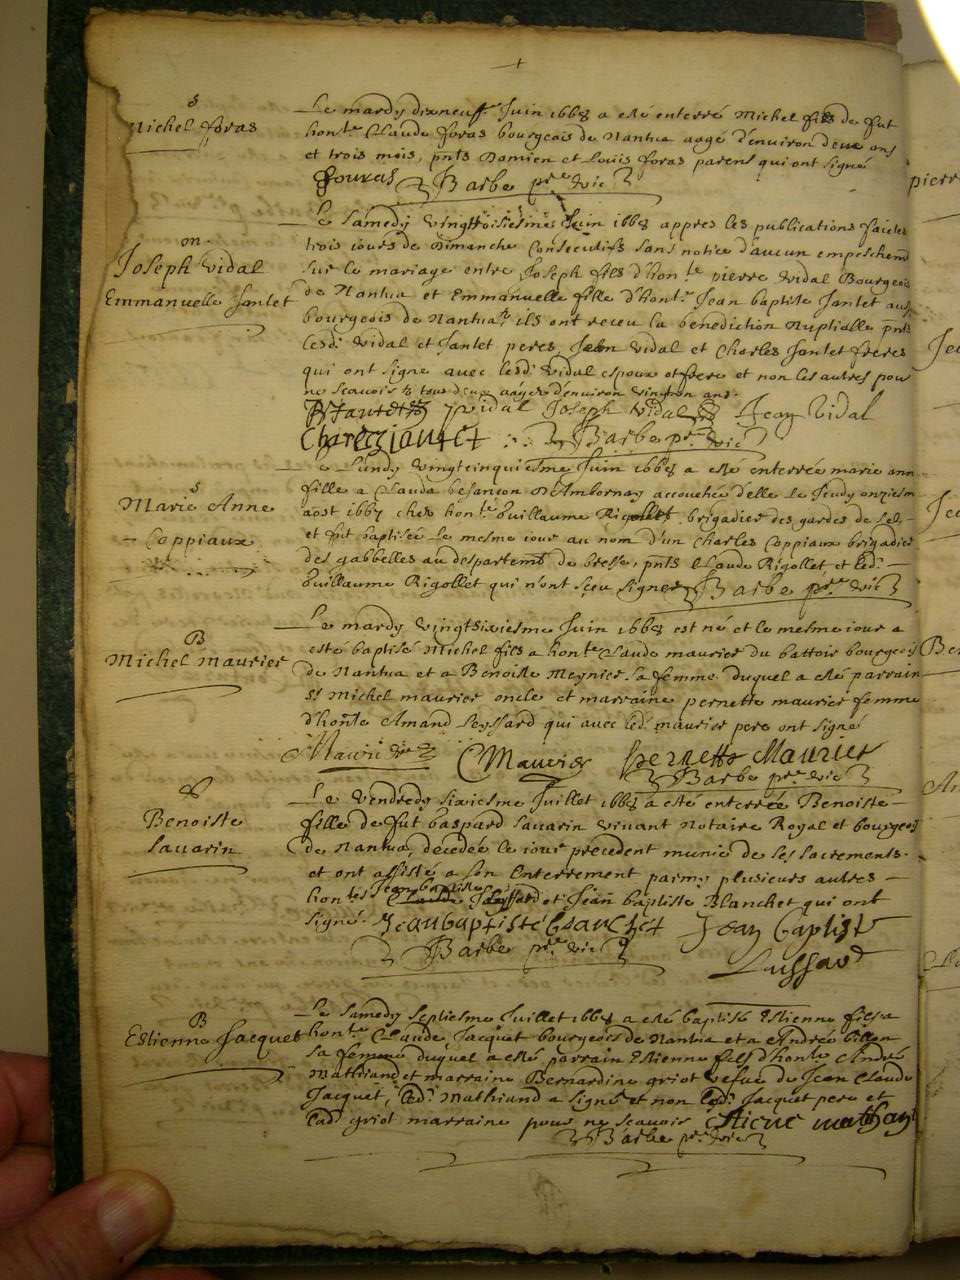 S
Michel foras
Le mardy dixneuf.e Juin 1668 a esté enterré Michel fils de fut
hon.te Claude foras bourgeois de Nantua aagé d'environ deux ans
et trois mois, pnts Damien et Louis foras parens qui ont signé
fouras Barbe p.re vic
m.
Joseph Vidal
Emmanuelle Jantet
Le samedy vingttroisiesme Juin 1668 appres les publications faictes
trois jours de Dimanche Consecutifs sans notice d'aucun empeschem.t
sur le mariage entre Joseph fils d'hon.te pierre Vidal Bourgeois
de Nantua et Emmanuelle fille d'hon.te Jean baptiste Jantet aussy
bourgeois de Nantua, ils ont receu la benediction Nuptialle pnts
lesd. Vidal et Jantet peres, Jean Vidal et Charles Jantet freres
qui ont signé avec lesd. Vidal espoux et frere et non les autres pour
ne scavoir tous deux aagez d'environ ans.
Jantet Vidal Joseph Vidal Jean Vidal
Charles Jantet Barbe p.re vic
S
Marie Anne
Coppiaux
Le Lundy vingtcinquiesme Juin 1668 a esté enterrée marie anne
fille a Clauda besançon D'Ambornay accouchée d'elle le Jeudy onziesme
aost 1667 chez hon.te Guillaume Rigollet brigadier des gardes de sel
et fut baptisée le mesme jour au nom d'un Charles Coppiaux brigadier
des gabbelles au despartem.t de bresse, pnts Claude Rigollet et led.
Guillaume Rigollet qui n'ont sceu signer Barbe p.re vic
B
Michel maurier
Le mardy vingtsixiesme Juin 1668 est né et le mesme jour a
esté baptisé Michel fils a hon.te Claude maurier du battoir bourgeois
de Nantua et a Benoiste Meynier sa femme duquel a esté parrain
S.r Michel maurier oncle et marraine pernette maurier femme
d'hon.te Amand Seyssard qui avec led. maurier pere ont signé
Maurier CMaurier pernette Maurier
Barbe p.re vic
S
Benoiste
Savarin
Le Vendredy sixiesme Juillet 1668 a esté enterrée Benoiste
fille de fut Gaspard Savarin vivant Notaire Royal et bourgeois
de Nantua, decedée le jour precedent munie de ses sacrements.
et ont assisté a son Enterrement parmy plusieurs autres
hon.tes Jean baptiste et Jean baptiste Blanchet qui ont
signé. Jeanbaptiste blanchet Jean baptiste
Barbe p.re vic
B
Estienne Jacquet
Le samedy septiesme Juillet 1668 a esté baptisé Estienne fils a
hon.te Claude Jacquet bourgeois de Nantua et a Andréé billon
sa femme duquel a esté parrain Estienne fils d'hon.te André
Mathiand et marraine Bernardine griot vefve de Jean Claude
Jacquet, led. Mathiand a signé et non led. Jacquet pere et
lad. griot marraine pour ne scavoir Etiene mathant
Barbe p.re vic